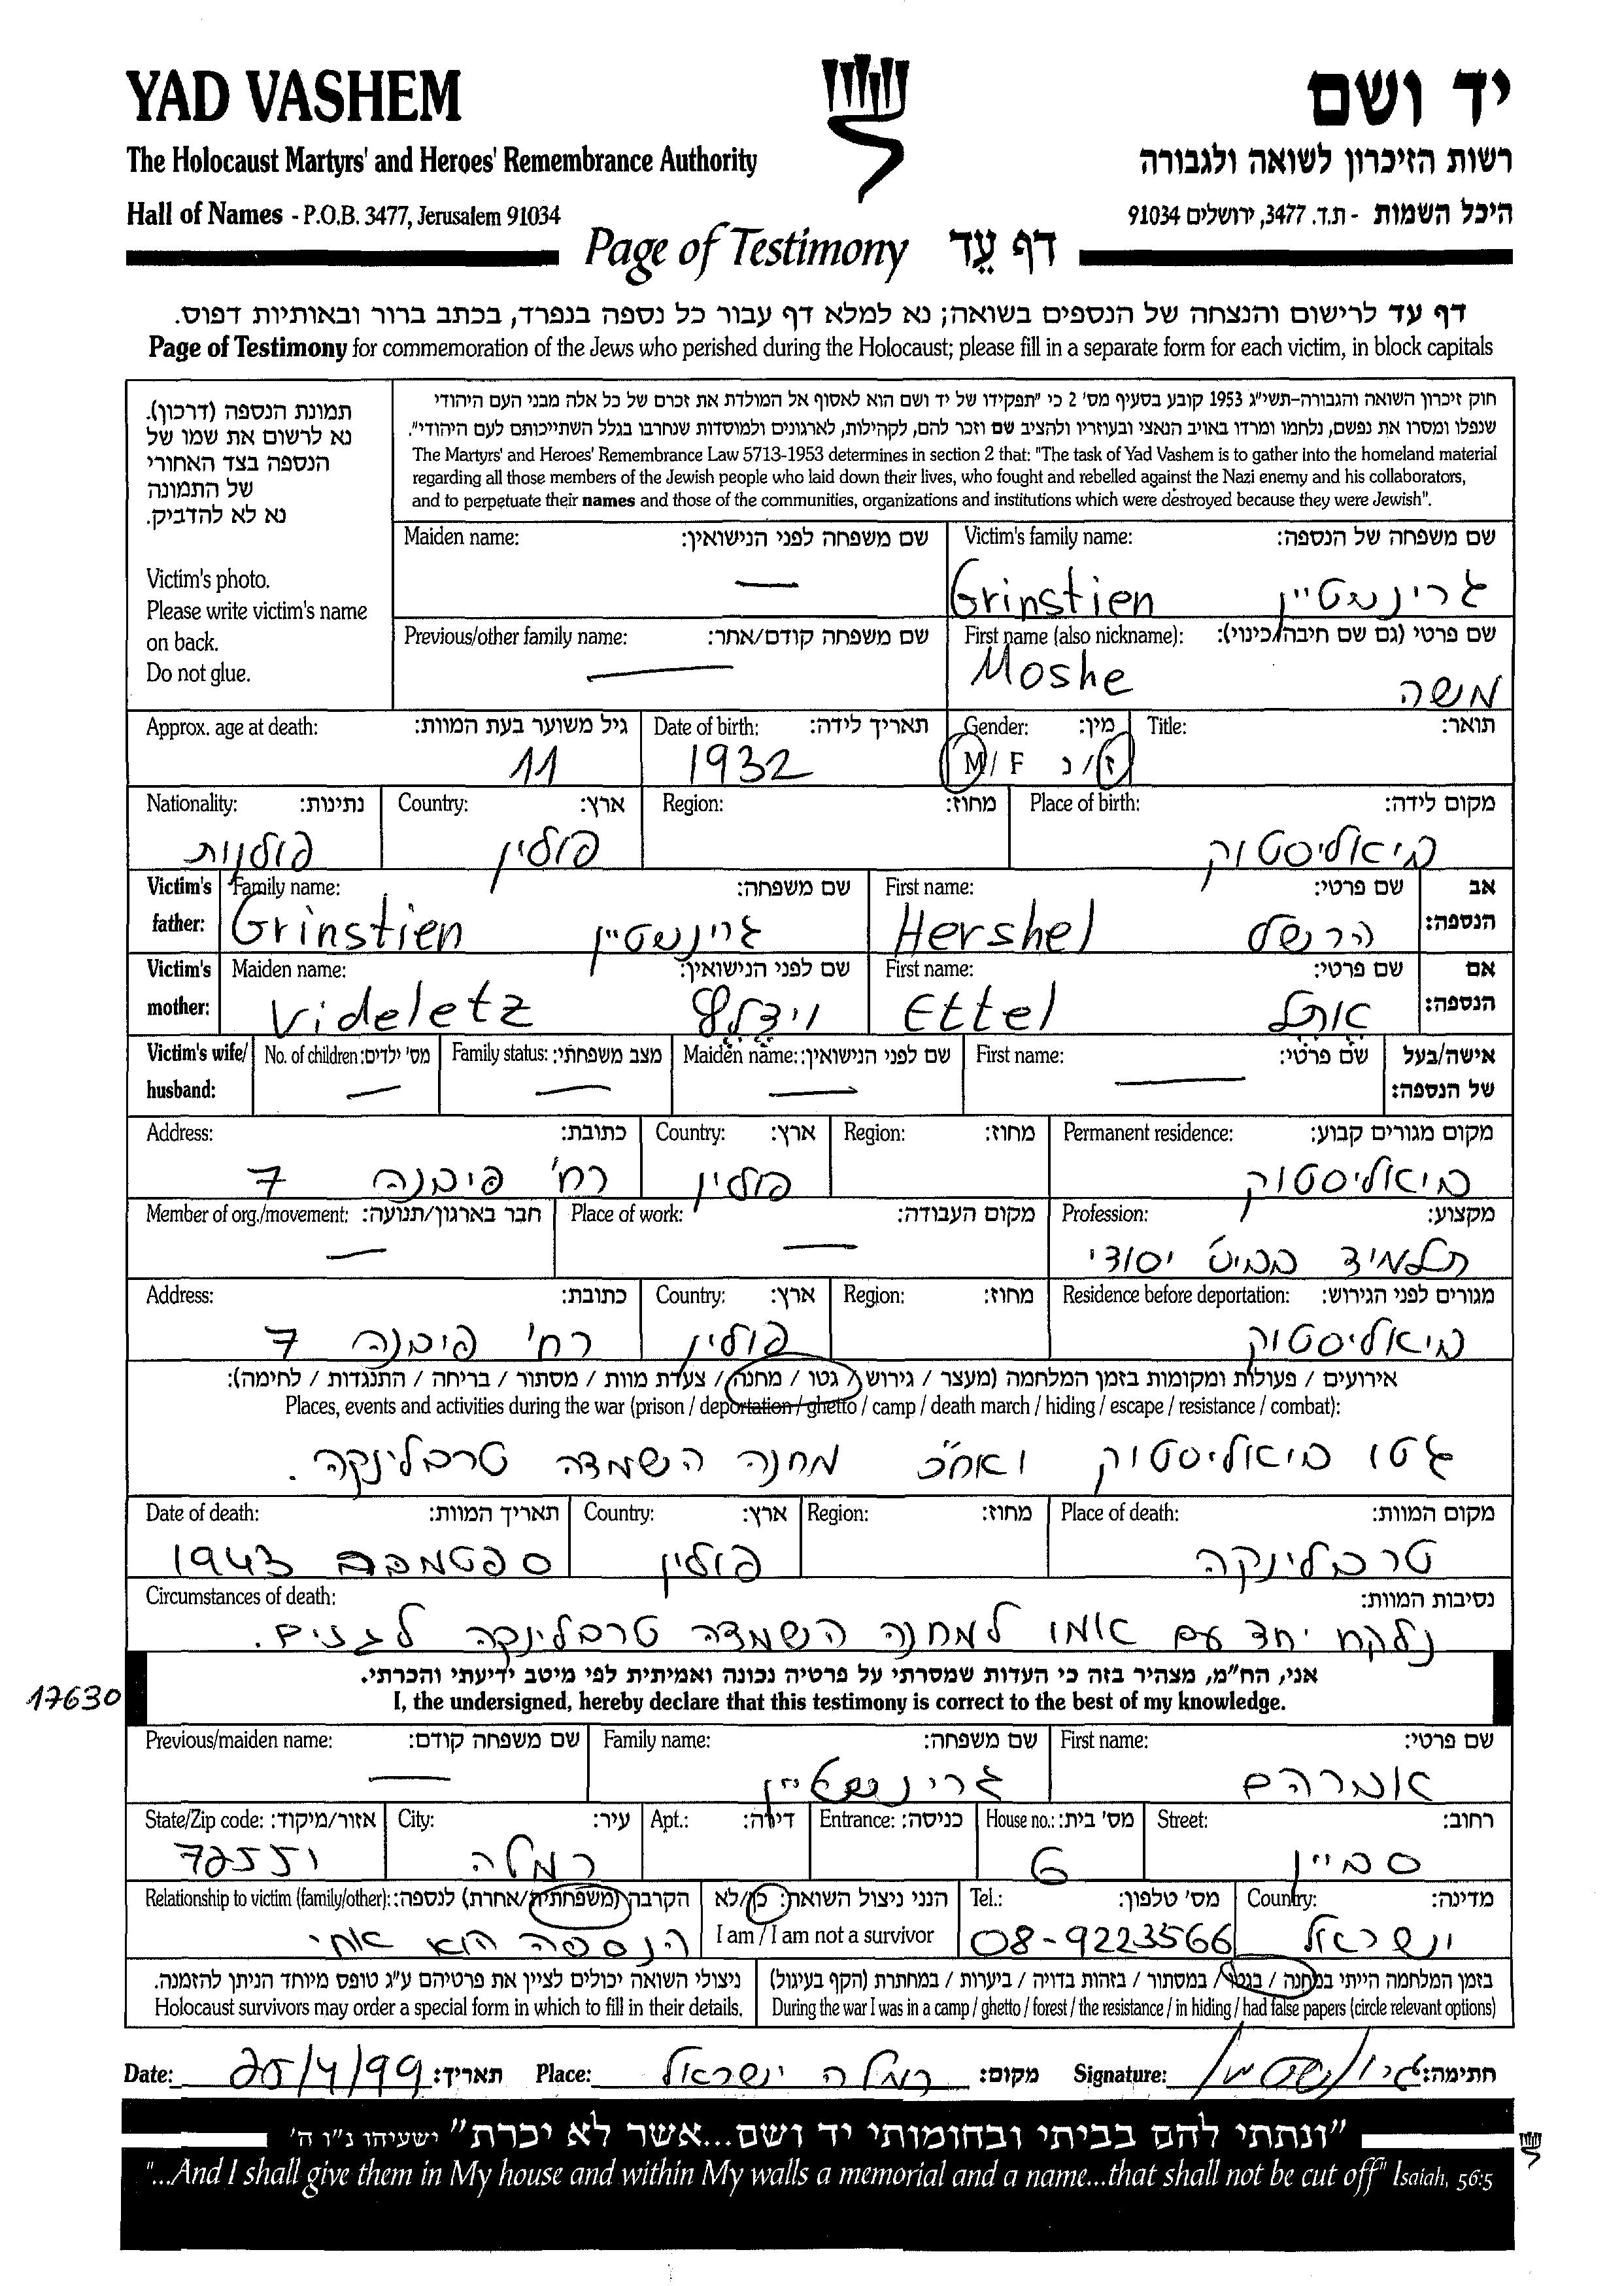 YAD VASHEM
יד ושם
The Holocaust Martyrs' and Heroes' Remembrance Authority
רשות הזיכרון לשואה ולגבורה
Hall of Names - P.O.B. 3477, Jerusalem 91034
היכל השמות - ת.ד. 3477, ירושלים 91034
Page of Testimony דף עֵד
דף עד לרישום והנצחה של הנספים בשואה; נא למלא דף עבור כל נספה בנפרד, בכתב ברור ובאותיות דפוס.
Page of Testimony for commemoration of the Jews who perished during the Holocaust; please fill in a separate form for each victim, in block capitals
תמונת הנספה (דרכון).
נא לרשום את שמו של
הנספה בצד האחורי
של התמונה
נא לא להדביק.
Victim's photo.
Please write victim's name
on back.
Do not glue.
חוק זיכרון השואה והגבורה-תשי"ג 1953 קובע בסעיף מס' 2 כי "תפקידו של יד ושם הוא לאסוף אל המולדת את זכרם של כל אלה מבני העם היהודי
שנפלו ומסרו את נפשם, נלחמו ומרדו באויב הנאצי ובעוזריו ולהציב שם וזכר להם, לקהילות, לארגונים ולמוסדות שנחרבו בגלל השתייכותם לעם היהודי".
The Martyrs' and Heroes' Remembrance Law 5713-1953 determines in section 2 that: "The task of Yad Vashem is to gather into the homeland material
regarding all those members of the Jewish people who laid down their lives, who fought and rebelled against the Nazi enemy and his collaborators,
and to perpetuate their names and those of the communities, organizations and institutions which were destroyed because they were Jewish".
שם משפחה של הנספה: Victim's family name:
גרינשטיין Grinstien
שם משפחה לפני הנישואין: Maiden name:
—
שם פרטי (גם שם חיבה/כינוי): First name (also nickname):
משה Moshe
שם משפחה קודם/אחר: Previous/other family name:
—
תואר: Title:
מין: Gender:
ז/נ M/F
תאריך לידה: Date of birth:
1932
גיל משוער בעת המוות: Approx. age at death:
11
מקום לידה: Place of birth:
ביאליסטוק
מחוז: Region:
ארץ: Country:
פולין
נתינות: Nationality:
פולנות
אב הנספה: Victim's father:
שם פרטי: First name:
הרשל Hershel
שם משפחה: Family name:
גרינשטיין Grinstien
אם הנספה: Victim's mother:
שם פרטי: First name:
אתל Ettel
שם לפני הנישואין: Maiden name:
וידלץ Videletz
אישה/בעל של הנספה: Victim's wife/husband:
שם פרטי: First name:
—
שם לפני הנישואין: Maiden name:
—
מצב משפחתי: Family status:
—
מס' ילדים: No. of children:
—
מקום מגורים קבוע: Permanent residence:
ביאליסטוק
מחוז: Region:
ארץ: Country:
פולין
כתובת: Address:
רח' פיבנה 7
מקצוע: Profession:
תלמיד בבי"ס יסודי
מקום העבודה: Place of work:
—
חבר בארגון/תנועה: Member of org./movement:
—
מגורים לפני הגירוש: Residence before deportation:
ביאליסטוק
מחוז: Region:
ארץ: Country:
פולין
כתובת: Address:
רח' פיבנה 7
אירועים / פעולות ומקומות בזמן המלחמה (מעצר / גירוש / גטו / מחנה / צעדת מוות / מסתור / בריחה / התנגדות / לחימה):
Places, events and activities during the war (prison / deportation / ghetto / camp / death march / hiding / escape / resistance / combat):
גטו ביאליסטוק ואח"כ מחנה השמדה טרבלינקה.
מקום המוות: Place of death:
טרבלינקה
מחוז: Region:
ארץ: Country:
פולין
תאריך המוות: Date of death:
ספטמבר 1943
נסיבות המוות: Circumstances of death:
נלקח יחד עם אמו למחנה השמדה טרבלינקה לגזים.
אני, הח"מ, מצהיר בזה כי העדות שמסרתי על פרטיה נכונה ואמיתית לפי מיטב ידיעתי והכרתי.
I, the undersigned, hereby declare that this testimony is correct to the best of my knowledge.
17630
שם פרטי: First name:
אברהם
שם משפחה: Family name:
גרינשטיין
שם משפחה קודם: Previous/maiden name:
—
רחוב: Street:
סביון
מס' בית: House no.:
6
כניסה: Entrance:
דירה: Apt.:
עיר: City:
רמלה
אזור/מיקוד: State/Zip code:
72551
מדינה: Country:
ישראל
מס' טלפון: Tel.:
08-9223566
הנני ניצול השואה: כן/לא
I am / I am not a survivor
הקרבה (משפחתית/אחרת) לנספה: Relationship to victim (family/other):
הנספה הוא אחי
בזמן המלחמה הייתי במחנה / בגטו / במסתור / בזהות בדויה / ביערות / במחתרת (הקף בעיגול)
During the war I was in a camp / ghetto / forest / the resistance / in hiding / had false papers (circle relevant options)
ניצולי השואה יכולים לציין את פרטיהם ע"ג טופס מיוחד הניתן להזמנה.
Holocaust survivors may order a special form in which to fill in their details.
חתימה: Signature:
מקום: רמלה ישראל Place:
תאריך: 25/4/99 Date:
"ונתתי להם בביתי ובחומותי יד ושם...אשר לא יכרת" ישעיהו נ"ו ה'
"...And I shall give them in My house and within My walls a memorial and a name...that shall not be cut off" Isaiah, 56:5